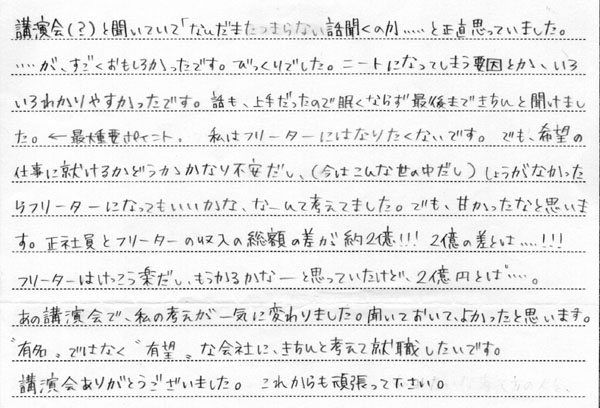 講演会(?)と聞いていて「なんだまたつまらない話聞くのか.....と正直思っていました。
....が、すごくおもしろかったです。びっくりでした。ニートになってしまう要因とか、いろ
いろわかりやすかったです。話も、上手だったので眠くならず最後まできちんと聞けまし
た。←最重要ポイント。 私はフリーターにはなりたくないです。でも、希望の
仕事に就けるかどうかかなり不安だし、(今はこんな世の中だし)しょうがなかった
らフリーターになってもいいかな、なーんて考えてました。でも、甘かったなと思いま
す。正社員とフリーターの収入の総額の差が約2億!!! 2億の差とは....!!!
フリーターはけっこう楽だし、もうかるかなーと思っていたけど、2億円とは....。
あの講演会で、私の考えが一気に変わりました。聞いておいて、よかったと思います。
"有名"ではなく"有望"な会社に、きちんと考えて就職したいです。
講演会ありがとうございました。これからも頑張って下さい。